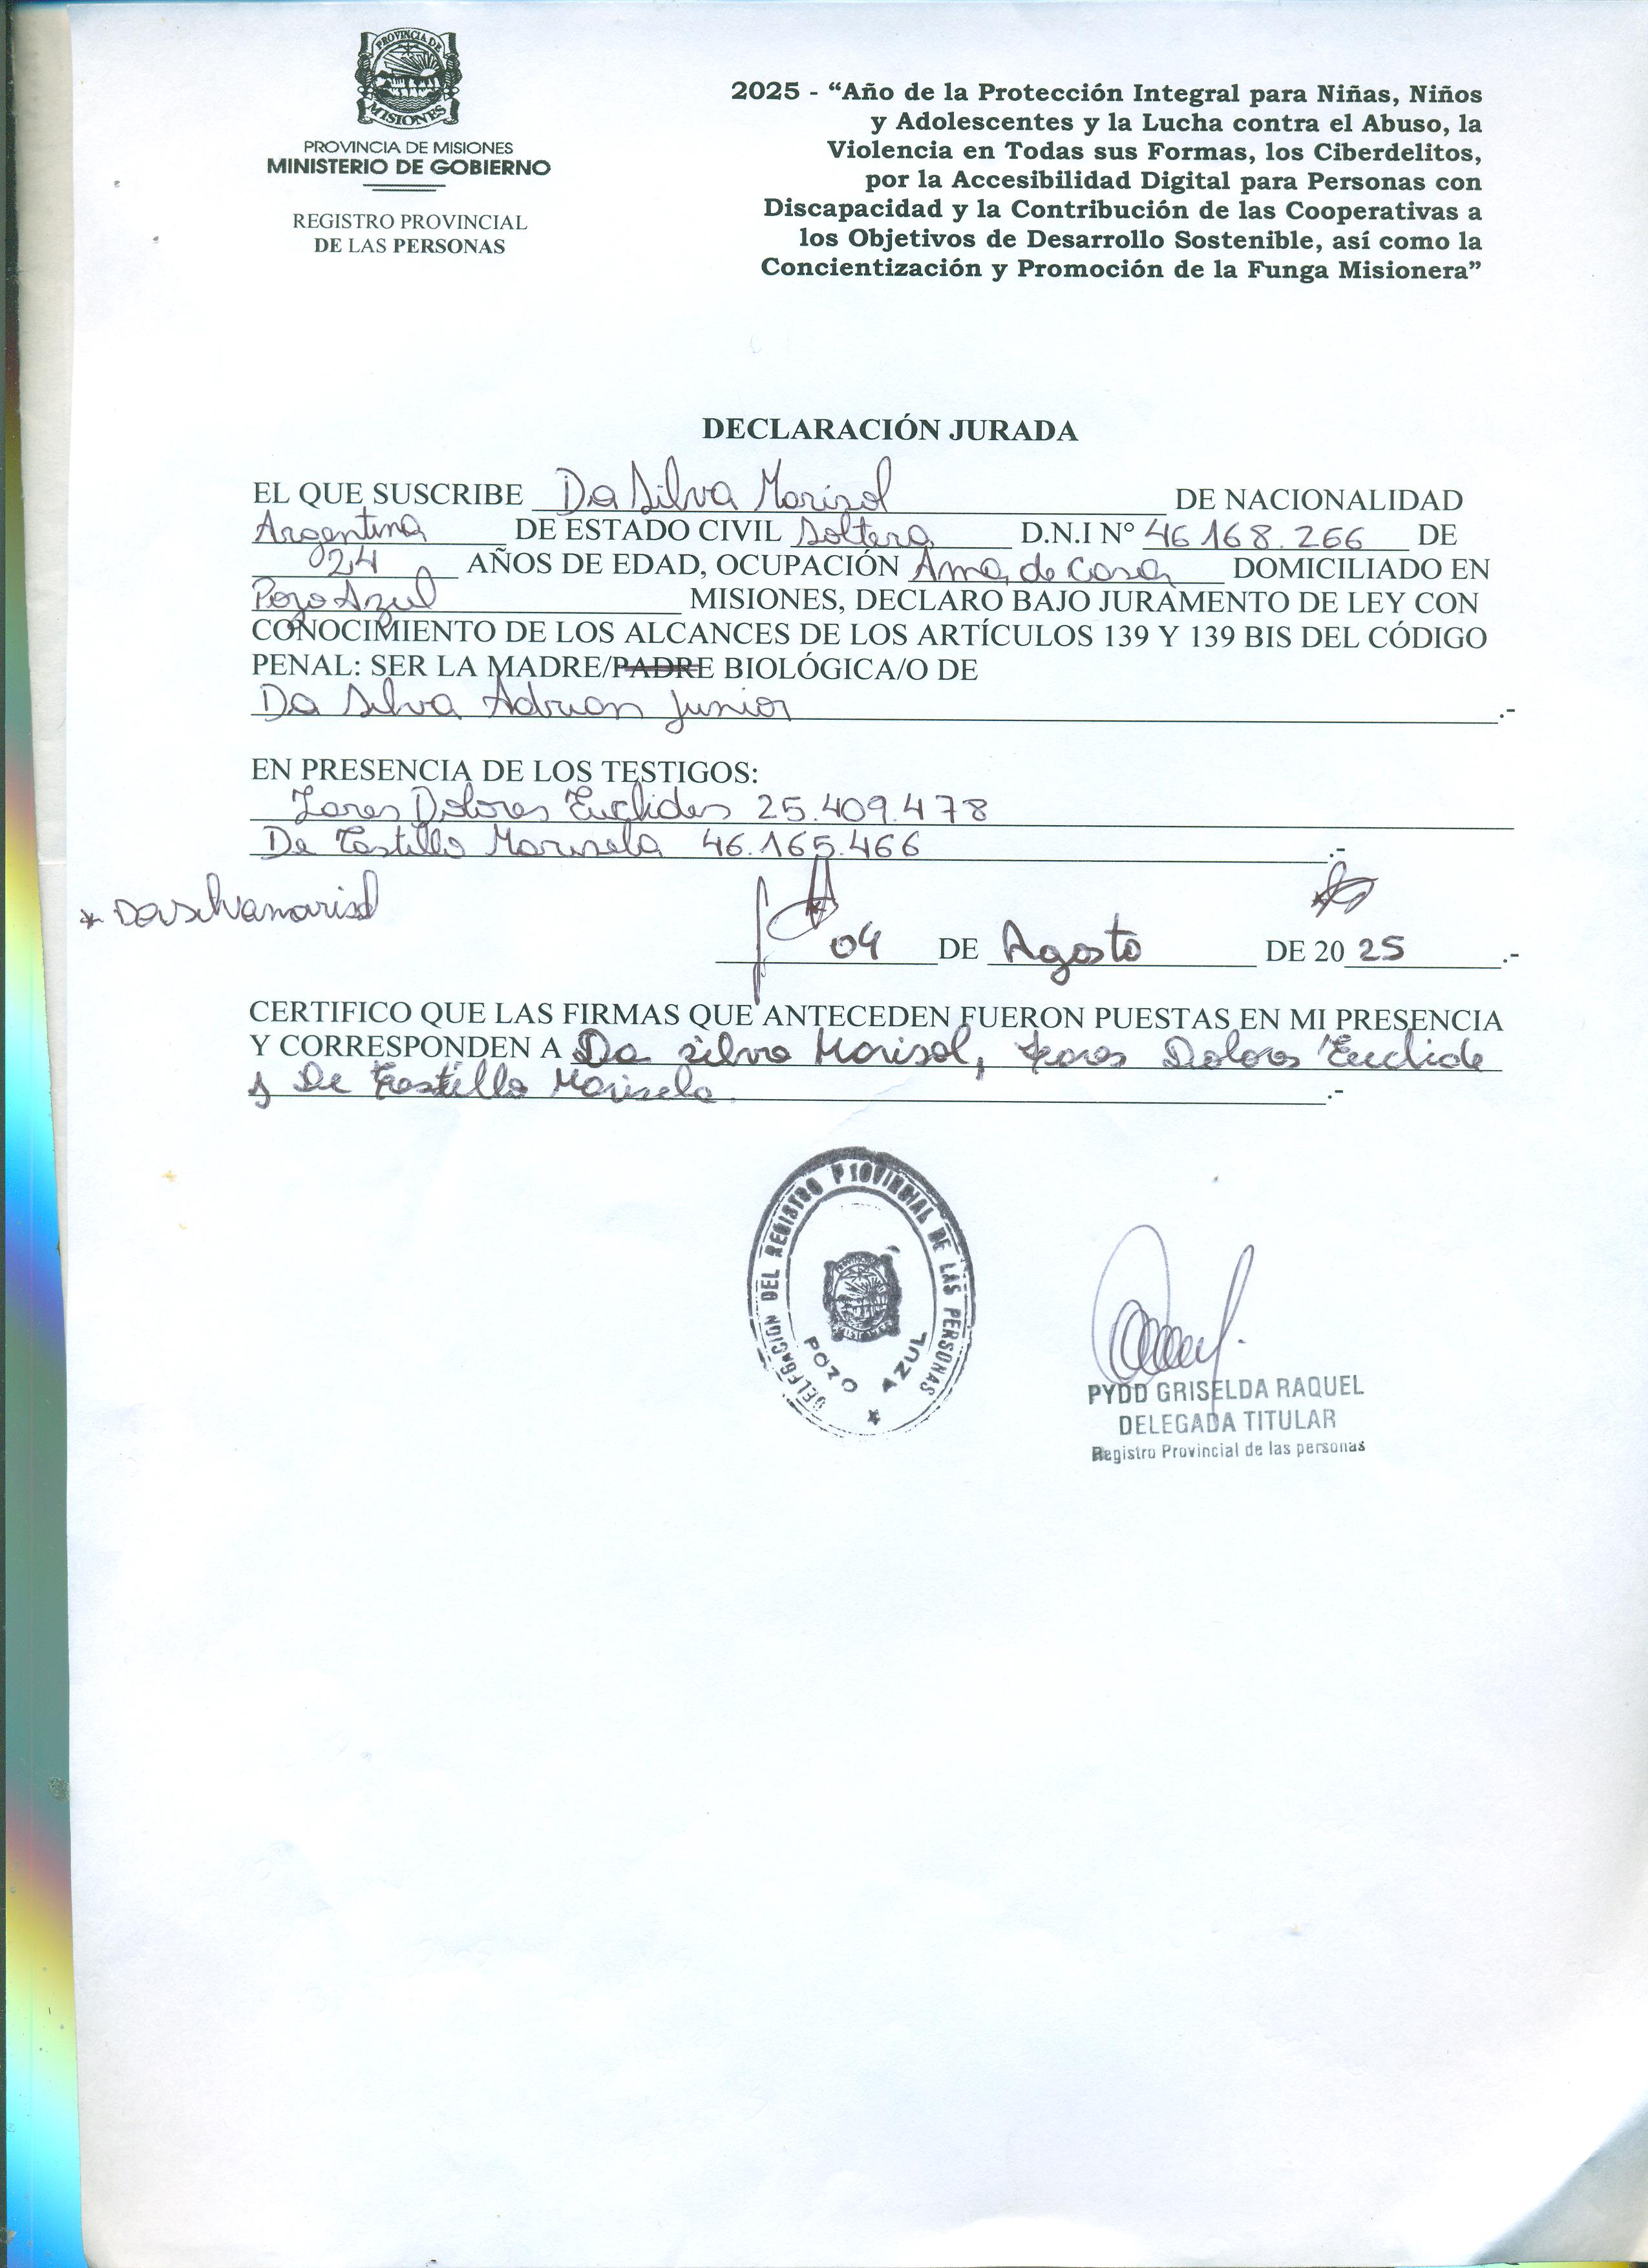 PROVINCIA DE
MISIONES
PROVINCIA DE MISIONES
MINISTERIO DE GOBIERNO
REGISTRO PROVINCIAL
DE LAS PERSONAS
2025 - “Año de la Protección Integral para Niñas, Niños
y Adolescentes y la Lucha contra el Abuso, la
Violencia en Todas sus Formas, los Ciberdelitos,
por la Accesibilidad Digital para Personas con
Discapacidad y la Contribución de las Cooperativas a
los Objetivos de Desarrollo Sostenible, así como la
Concientización y Promoción de la Funga Misionera”
DECLARACIÓN JURADA
EL QUE SUSCRIBE Da Silva Marisol DE NACIONALIDAD
Argentina DE ESTADO CIVIL Soltera D.N.I N° 46.168.266 DE
024 AÑOS DE EDAD, OCUPACIÓN Ama de Casa DOMICILIADO EN
Pozo Azul MISIONES, DECLARO BAJO JURAMENTO DE LEY CON
CONOCIMIENTO DE LOS ALCANCES DE LOS ARTÍCULOS 139 Y 139 BIS DEL CÓDIGO
PENAL: SER LA MADRE/PADRE BIOLÓGICA/O DE
Da Silva Adrian Junior .-
EN PRESENCIA DE LOS TESTIGOS:
Dolores Euclides 25.409.478
De Marisela 46.165.466 .-
* Dasilvamarisol
04 DE Agosto DE 2025 .-
CERTIFICO QUE LAS FIRMAS QUE ANTECEDEN FUERON PUESTAS EN MI PRESENCIA
Y CORRESPONDEN A Da Silva Marisol, Dolores Euclide
y De Marisela .-
DELEGACION DEL REGISTRO PROVINCIAL DE LAS PERSONAS
POZO AZUL
PYDD GRISELDA RAQUEL
DELEGADA TITULAR
Registro Provincial de las personas